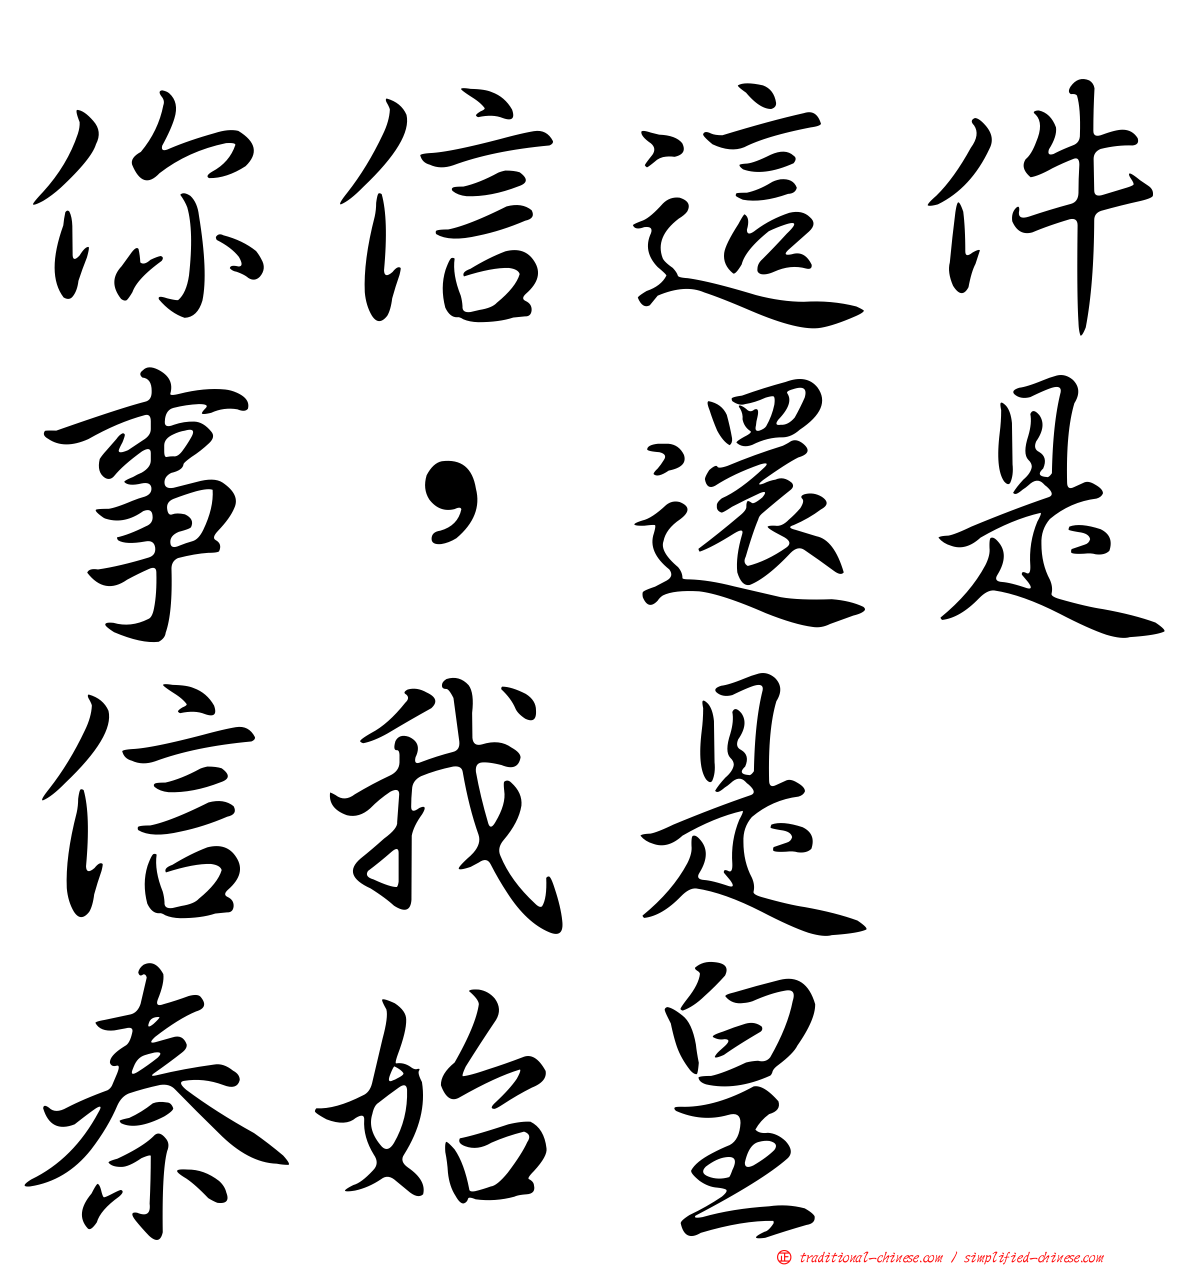 你信這件
事，還是
信我是
秦始皇
正 traditional-chinese.com / simplified-chinese.com